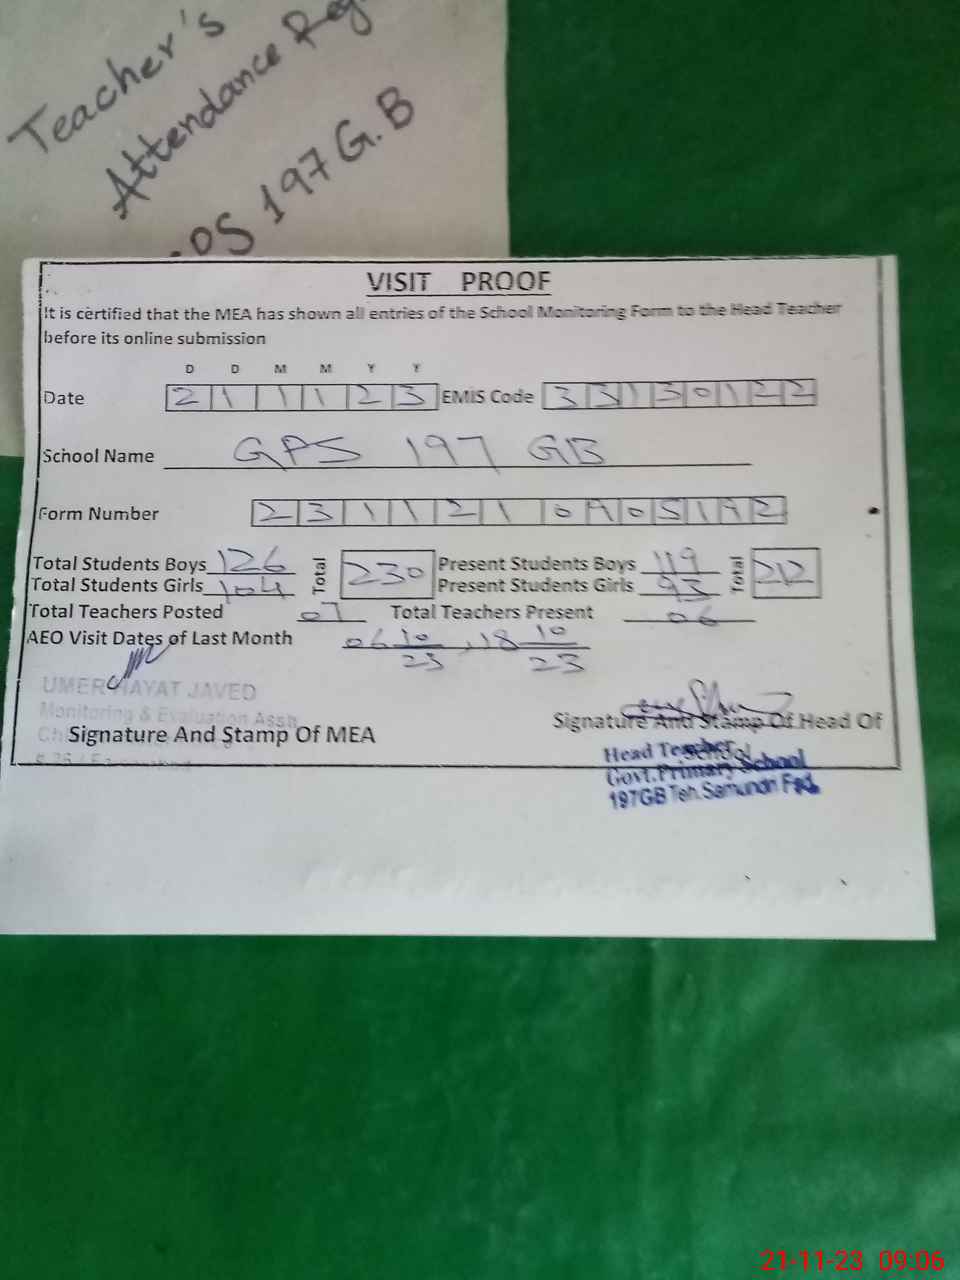 Teacher's
Attendance Reg
PS 197 G.B
VISIT PROOF
It is certified that the MEA has shown all entries of the School Monitoring Form to the Head Teacher
before its online submission
D D M M Y Y
Date 2 1 1 1 2 3 EMIS Code 3 3 1 3 0 1 2 2
School Name GPS 197 GB
Form Number 2 3 1 1 2 1 0 9 0 5 1 9 2
Total Students Boys 126 Total 230 Present Students Boys 119 Total 212
Total Students Girls 104 Present Students Girls 93
Total Teachers Posted 07 Total Teachers Present 06
AEO Visit Dates of Last Month 06 10/23, 18 10/23
UMER HAYAT JAVED
Monitoring & Evaluation Asstt
Signature And Stamp Of MEA
Signature And Stamp Of Head Of
School
Head Teacher
Govt. Primary School
197GB Teh. Samundri Fsd.
21-11-23 09:06